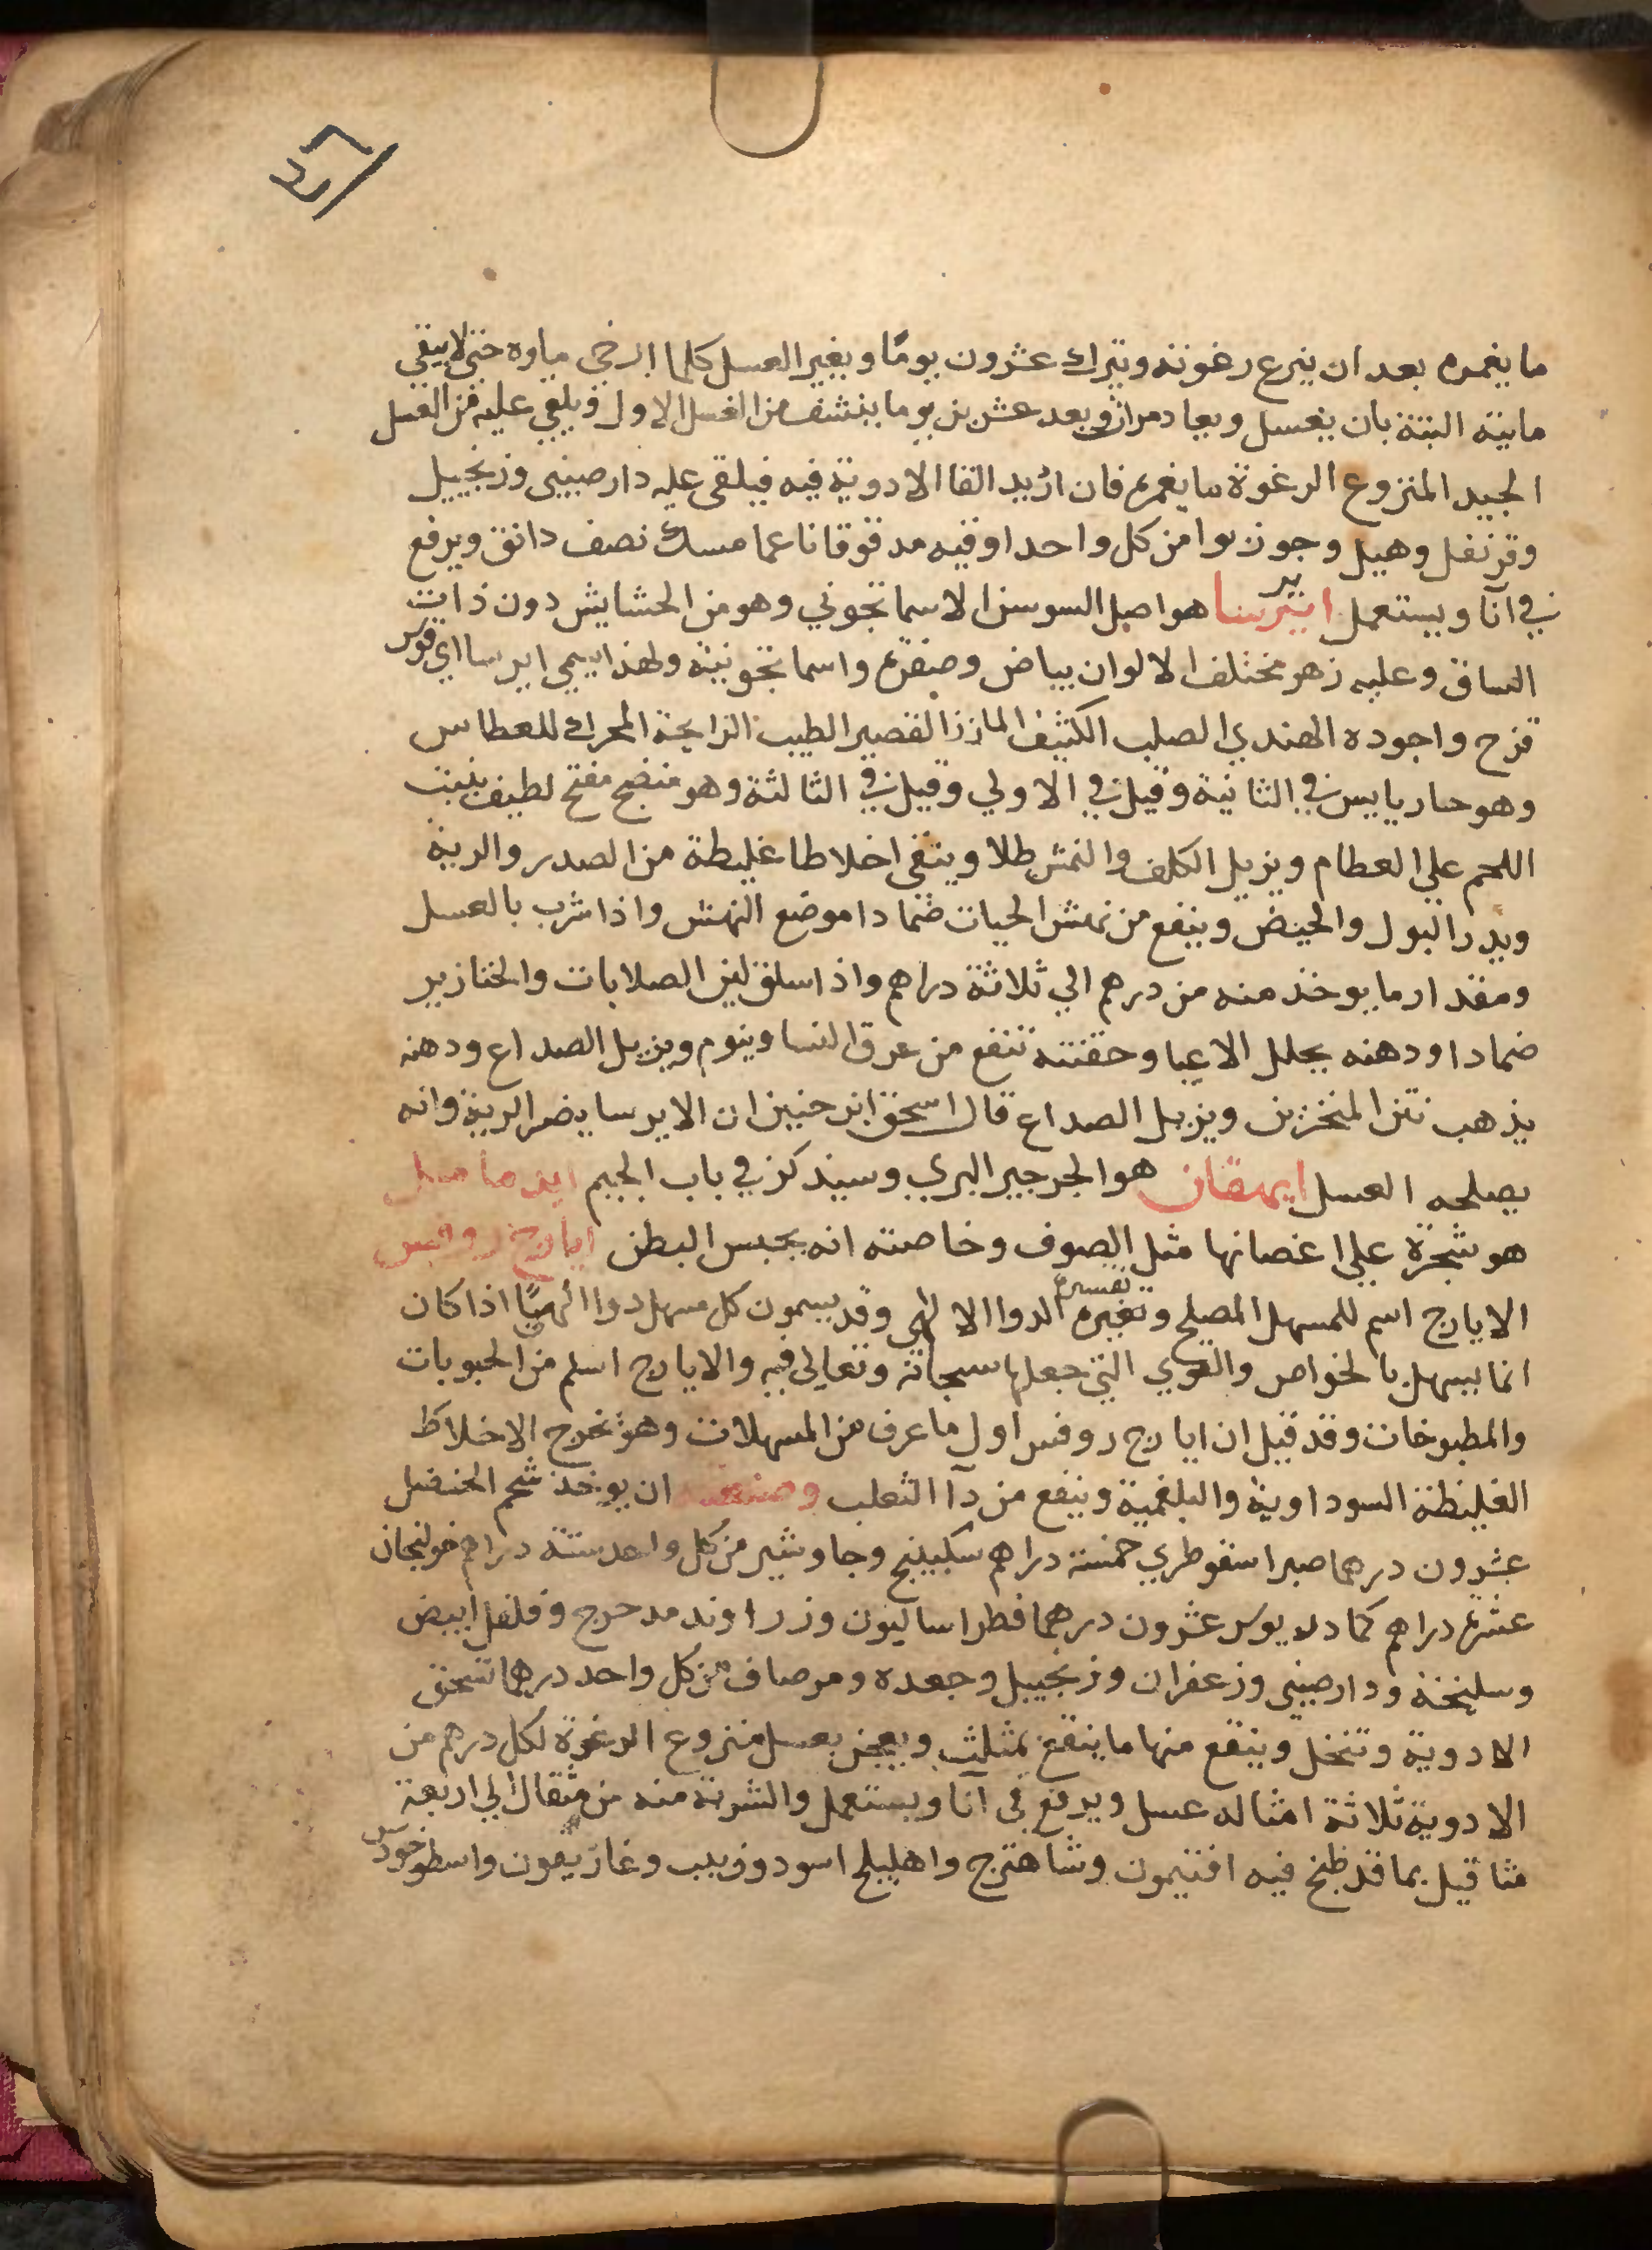 ما يغمره بعد ان ينزع رغوته ويترك عشرون يومًا ويغير العسل كلما ارخى ماوه حتى لا يبقى
مايية البتة بان يغسل ويعاد مرارًا وبعد عشرين يوما ينشف من العسل الاول ويلقي عليه من العسل
الجيد المنزوع الرغوة ما يغمره فان اريد القا الادوية فيه فيلقى عليه دارصيني وزنجبيل
وقرنفل وهيل وجوز بوا من كل واحد اوقيه مدقوقا ناعما مسك نصف دانق ويرفع
في آنا ويستعمل ايرسا هو اصل السوسن الاسمانجوني وهو من الحشايش دون ذات
الساق وعليه زهر مختلف الالوان بياض وصفرة واسمانجونية ولهذا يسمي ايرسا اي قوس
قزح واجوده الهندي الصلب الكثيف القصير الطيب الرايحة المحرك للعطاس
وهو حار يابس في الثانية وقيل في الاولي وقيل في الثالثة وهو منضج مفتح لطيف ينبت
اللحم علي العظام ويزيل الكلف والنمش طلا وينقى اخلاطا غليظة من الصدر والرية
ويدر البول والحيض وينفع من نهش الحيات ضمادا موضع النهش واذا شرب بالعسل
ومقدار ما يوخذ منه من درهم الي ثلاثة دراهم واذا سلق لين الصلابات والخنازير
ضمادا ودهنه يحلل الاعيا وحقنته تنفع من عرق النسا وينوم ويزيل الصداع ودهنه
يذهب نتن المنخرين ويزيل الصداع قال اسحق ابن حنين ان الايرسا يضر الرية وانه
يصلحه العسل ايهقان هو الجرجير البري وسيذكر في باب الجيم
هو شجرة علي اغصانها مثل الصوف وخاصته انه يحبس البطن ايارج روفس
الايارج اسم للمسهل المصلح وتفسيره الدوا الالهي وقد يسمون كل مسهل دوا الهيًا اذا كان
انما يسهل بالخواص والقوي التي جعلها سبحانه وتعالى فيه والايارج اسلم من الحبوبات
والمطبوخات وقد قيل ان ايارج روفس اول ما عرف من المسهلات وهو يخرج الاخلاط
الغليظة السوداوية والبلغمية وينفع من دآ الثعلب وصنعته ان يوخذ شحم الحنضل
عشرون درهما صبر اسقوطري خمسة دراهم سكبينج وجاوشير من كل واحد ستة دراهم خولنجان
عشرة دراهم كمادريوس عشرون درهما فطراساليون وزراوند مدحرج وفلفل ابيض
وسليخة ودارصيني وزعفران وزنجبيل وجعده ومر صاف من كل واحد درهما تسحق
الادوية وتنخل وينقع منها ما ينقع بمثلث ويعجن بعسل منزوع الرغوة لكل درهم من
الادوية ثلاثة امثاله عسل ويرفع في آنا ويستعمل والشربة منه من مثقال الي اربعة
مثاقيل بما قد طبخ فيه افتيمون وشاهترج واهليلج اسود وزبيب وغاريقون واسطوخودس